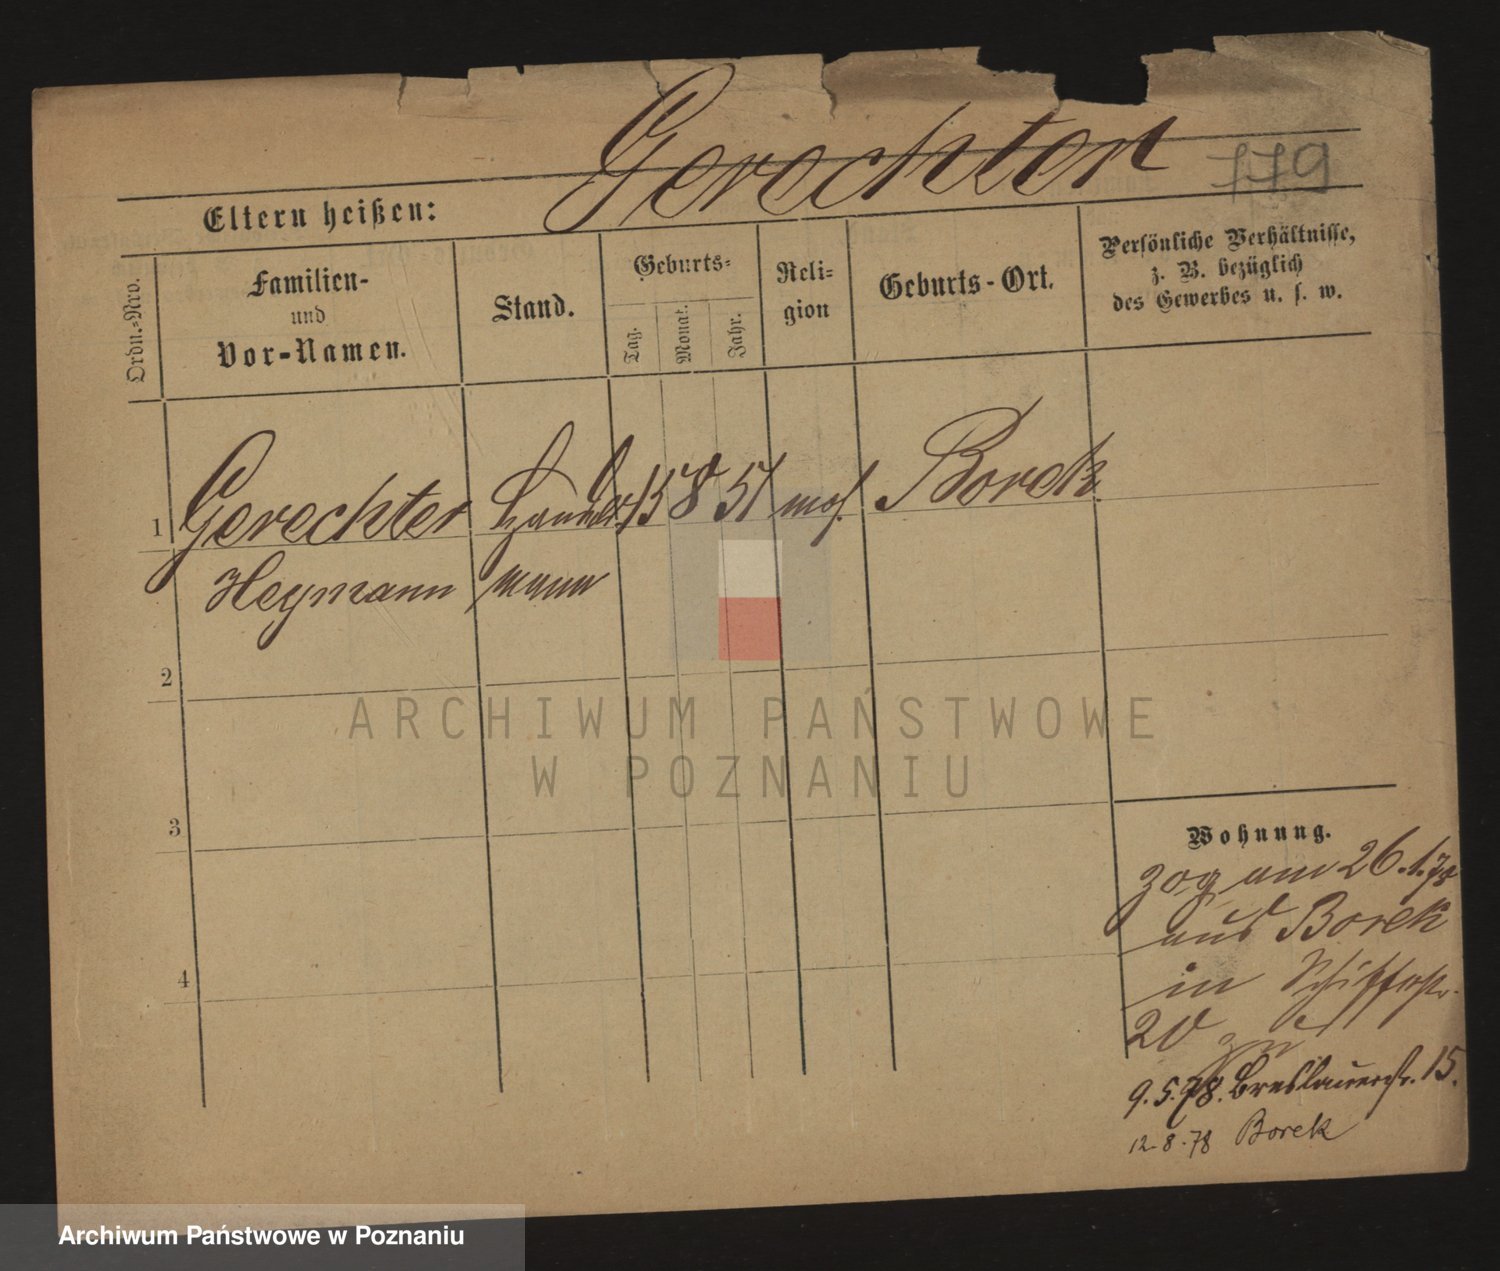 Gerechter
179
Eltern heißen:
Ordn.-Nro.
Familien-
und
Vor-Namen.
Stand.
Geburts-
Tag.
Monat.
Jahr.
Reli-
gion
Geburts-Ort.
Persönliche Verhältnisse,
z. B. bezüglich
des Gewerbes u. s. w.
1 Gerechter Handels 15 8 51 mos. Borek
Heymann mann
2
3
4
ARCHIWUM PAŃSTWOWE
W POZNANIU
Wohnung.
zog am 26.1.78
aus Borek
in Schifferstr.
20 zu
9.5.78. Breslauerstr. 15.
12-8-78 Borek
Archiwum Państwowe w Poznaniu